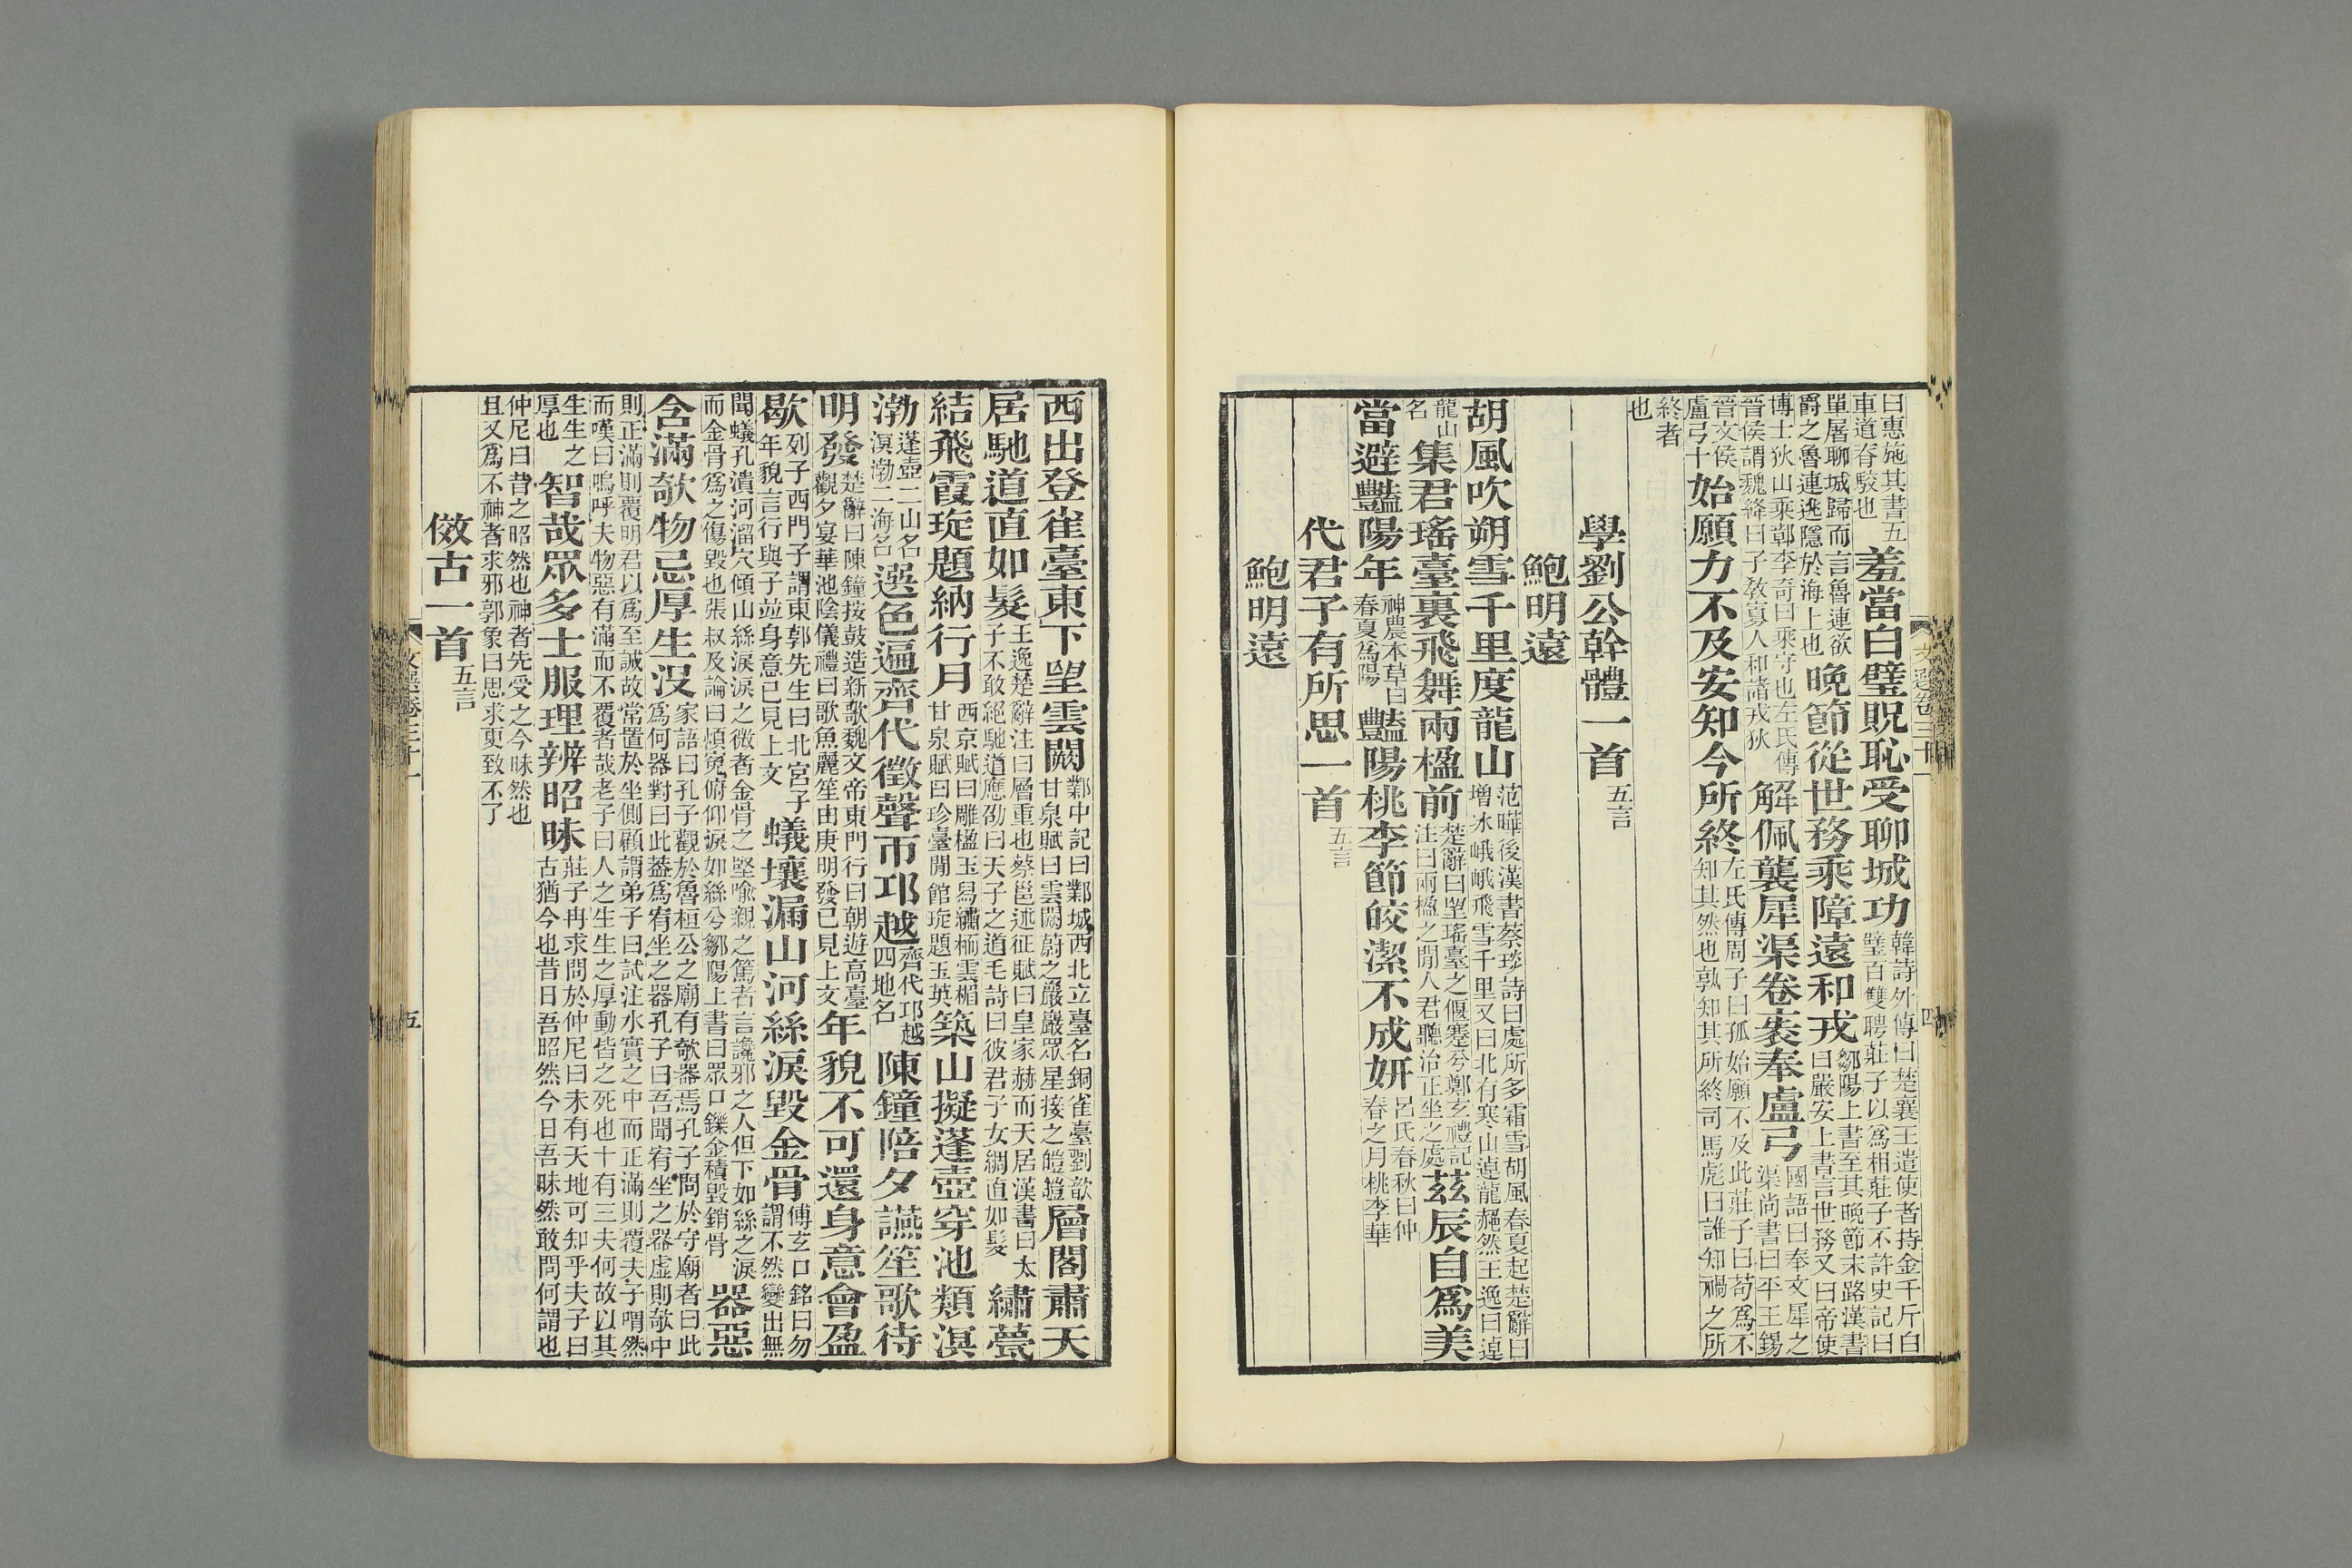 曰惠施其書五
車道舂駮也
羞當白璧貺恥受聊城功
韓詩外傳曰楚襄王遣使者持金千斤白
璧百雙聘莊子以爲相莊子不許史記曰
單屠聊城歸而言魯連欲
爵之魯連逃隱於海上也
晚節從世務乘障遠和戎
鄒陽上書至其晚節末路漢書
曰嚴安上書言世務又曰帝使
博士狄山乘鄣李奇曰乘守也左氏傳
晉侯謂魏絳曰子敎寡人和諸戎狄
解佩襲犀渠卷袠奉盧弓
國語曰奉文犀之
渠尚書曰平王錫
晉文侯
盧弓十
始願力不及安知今所終
左氏傳周子曰孤始願不及此莊子曰茍爲不
知其然也孰知其所終司馬彪曰誰知禍之所
終者
也
學劉公幹體一首
五言
鮑明遠
胡風吹朔雪千里度龍山
范曄後漢書蔡琰詩曰處所多霜雪胡風春夏起楚辭曰
增冰峨峨飛雪千里又曰北有寒山逴龍赩然王逸曰逴
龍山
名
集君瑤臺裏飛舞兩楹前
楚辭曰望瑤臺之偃蹇兮鄭玄禮記
注曰兩楹之閒人君聽治正坐之處
茲辰自爲美
當避豔陽年
神農本草曰
春夏爲陽
豔陽桃李節皎潔不成妍
呂氏春秋曰仲
春之月桃李華
代君子有所思一首
五言
鮑明遠
文選卷三十一
四
西出登雀臺東下望雲闕
鄴中記曰鄴城西北立臺名銅雀臺劉歆
甘泉賦曰雲闕蔚之巖巖眾星接之皚皚
層閣肅天
居馳道直如髮
王逸楚辭注曰層重也蔡邕述征賦曰皇家赫而天居漢書曰太
子不敢絕馳道應劭曰天子之道毛詩曰彼君子女綢直如髮
繡甍
結飛霞琁題納行月
西京賦曰雕楹玉舄繡栭雲楣
甘泉賦曰珍臺閒館琁題玉英
築山擬蓬壺穿池類溟
渤
蓬壺二山名
溟渤二海名
選色遍齊代徵聲帀邛越
齊代邛越
四地名
陳鐘陪夕讌笙歌待
明發
楚辭曰陳鐘按鼓造新歌魏文帝東門行曰朝遊高臺
觀夕宴華池陰儀禮曰歌魚麗笙由庚明發已見上文
年貌不可還身意會盈
歇
列子西門子謂東郭先生曰北宮子
年貌言行與子並身意已見上文
蟻壤漏山河絲淚毀金骨
傅玄口銘曰勿
謂不然變出無
聞蟻孔潰河溜穴傾山絲淚淚之微者金骨之堅喻親之篤者言讒邪之人但下如絲之淚
而金骨爲之傷毀也張叔及論曰煩冤俯仰淚如絲兮鄒陽上書曰眾口鑠金積毀銷骨
器惡
含滿欹物忌厚生沒
家語曰孔子觀於魯桓公之廟有欹器焉孔子問於守廟者曰此
爲何器對曰此蓋爲宥坐之器孔子曰吾聞宥坐之器虛則欹中
則正滿則覆明君以爲至誠故常置於坐側顧謂弟子曰試注水實之中而正滿則覆夫子喟然
而嘆曰嗚呼夫物惡有滿而不覆者哉老子曰人之生生之厚動皆之死也十有三夫何故以其
生生之
厚也
智哉眾多士服理辨昭昧
莊子冉求問於仲尼曰未有天地可知乎夫子曰
古猶今也昔日吾昭然今日吾昧然敢問何謂也
仲尼曰昔之昭然也神者先受之今昧然也
且又爲不神者求邪郭象曰思求更致不了
傚古一首
五言
文選卷三十一
五